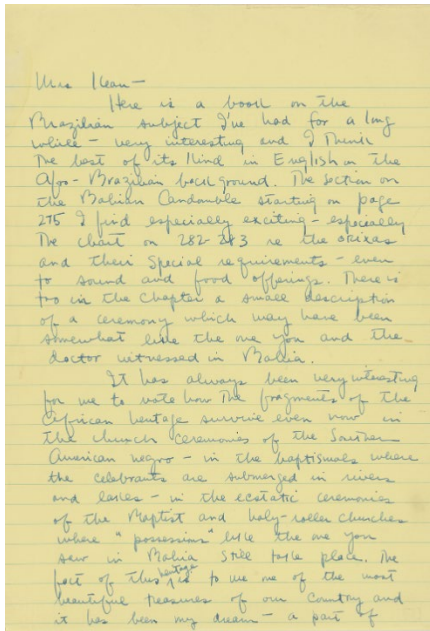 Mrs Kean —
Here is a book on the
Brazilian subject I've had for a long
while — very interesting and I think
the best of its kind in English on the
Afro-Brazilian background. The section on
the Bahian Candomble starting on page
275 I find especially exciting — especially
the chart on 282-283 re the orixas
and their special requirements — even
to sound and food offerings. There is
too in the chapter a small description
of a ceremony which may have been
somewhat like the one you and the
doctor witnessed in Bahia.
It has always been very interesting
for me to note how the fragments of the
African heritage survive even now in
the church ceremonies of the Southern
American negro — in the baptismals where
the celebrants are submerged in rivers
and lakes — in the ecstatic ceremonies
of the Baptist and holy-roller churches
where "possession" like the one you
saw in Bahia still take place. The
fact of this heritage is to me one of the most
beautiful treasures of our country and
it has been my dream — a part of